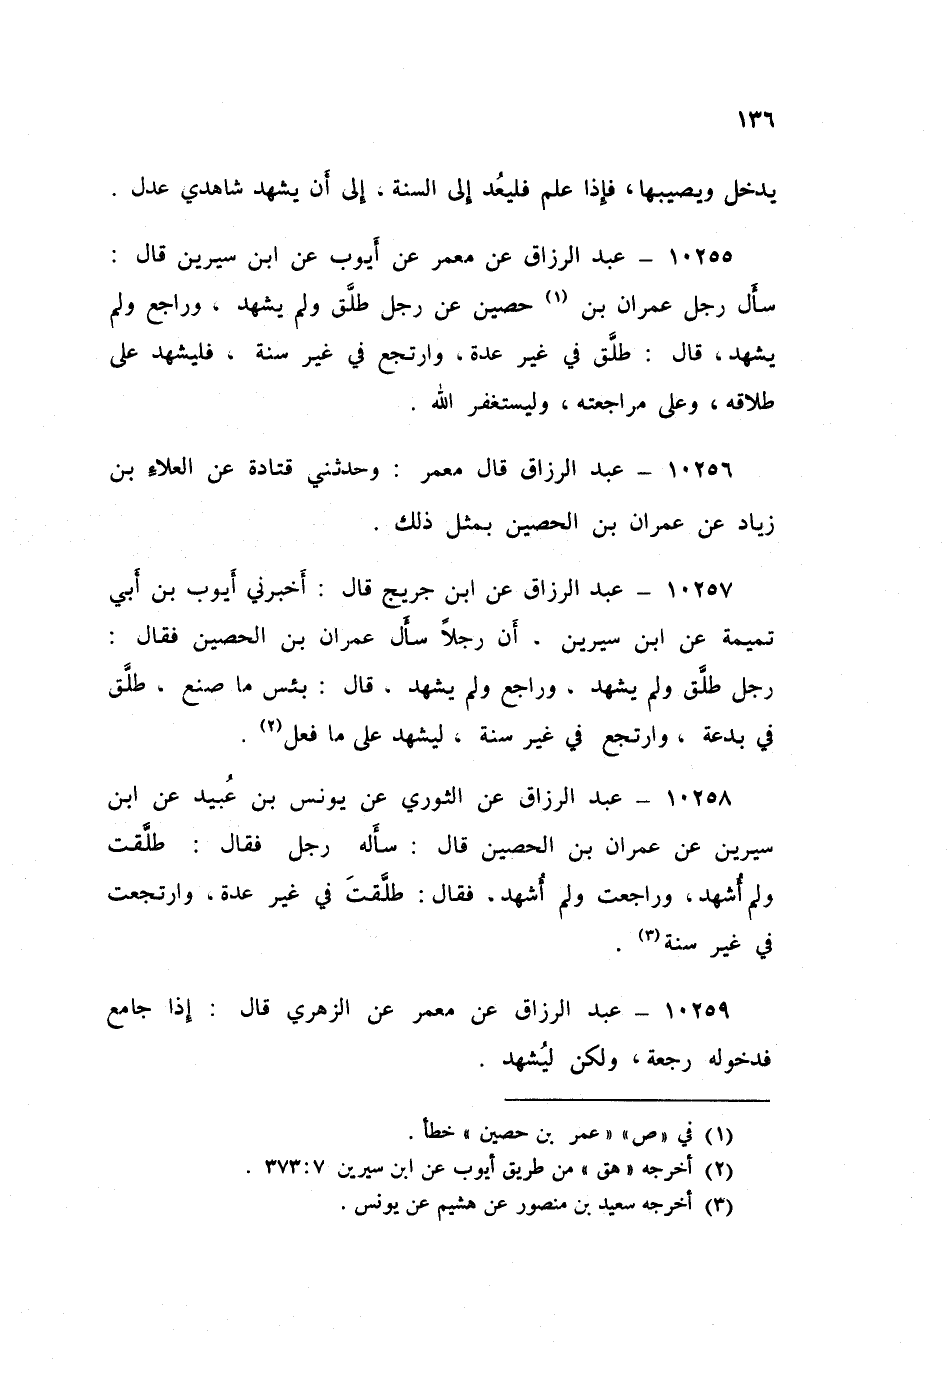 ١٣٦
يدخل ويصيبها، فإذا علم فليعُد إلى السنة ، إلى أن يشهد شاهدي عدل .
١٠٢٥٥ – عبد الرزاق عن معمر عن أيوب عن ابن سيرين قال :
سأل رجل عمران بن (١) حصين عن رجل طلَّق ولم يشهد ، وراجع ولم
يشهد، قال : طلَّق في غير عدة، وارتجع في غير سنة ، فليشهد على
طلاقه ، وعلى مراجعته ، وليستغفر الله .
١٠٢٥٦ – عبد الرزاق قال معمر : وحدثني قتادة عن العلاء بن
زياد عن عمران بن الحصين بمثل ذلك .
١٠٢٥٧ – عبد الرزاق عن ابن جريج قال : أخبرني أيوب بن أبي
تميمة عن ابن سيرين . أن رجلاً سأل عمران بن الحصين فقال :
رجل طلَّق ولم يشهد . وراجع ولم يشهد . قال : بئس ما صنع . طلَّق
في بدعة ، وارتجع في غير سنة ، ليشهد على ما فعل(٢) .
١٠٢٥٨ – عبد الرزاق عن الثوري عن يونس بن عُبيد عن ابن
سيرين عن عمران بن الحصين قال : سأله رجل فقال : طلَّقت
ولم أُشهد، وراجعت ولم أُشهد. فقال: طلَّقتَ في غير عدة، وارتجعت
في غير سنة(٣) .
١٠٢٥٩ – عبد الرزاق عن معمر عن الزهري قال : إذا جامع
فدخوله رجعة ، ولكن ليُشهد .
(١) في «ص» «عمر بن حصين» خطأ .
(٢) أخرجه «هق» من طريق أيوب عن ابن سيرين ٧:٣٧٣ .
(٣) أخرجه سعيد بن منصور عن هشيم عن يونس .